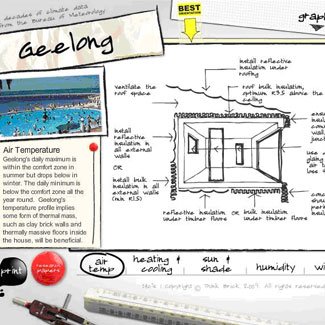 decades of climate data
from the Bureau of Meteorology
BEST
graph
Geelong
install reflective
insulation under
roofing
ventilate the
roof space
roof bulk insulation,
optimum R3.5 above the
ceiling
install
reflective
insulation in
all external
walls
OR
install bulk
insulation in all
external walls
(min R1.5)
reflective insulation
under timber floors
OR
bulk insulation
under timber floors
Air Temperature
Geelong's daily maximum is
within the comfort zone in
summer but drops below in
winter. The daily minimum is
below the comfort zone all the
year round. Geelong's
temperature profile implies
some form of thermal mass,
such as clay brick walls and
thermally massive floors inside
the house, will be beneficial.
print
papers
air
temp
heating
cooling
sun &
shade
humidity
wi
Copyright © Think Brick 2009. All rights reserved.